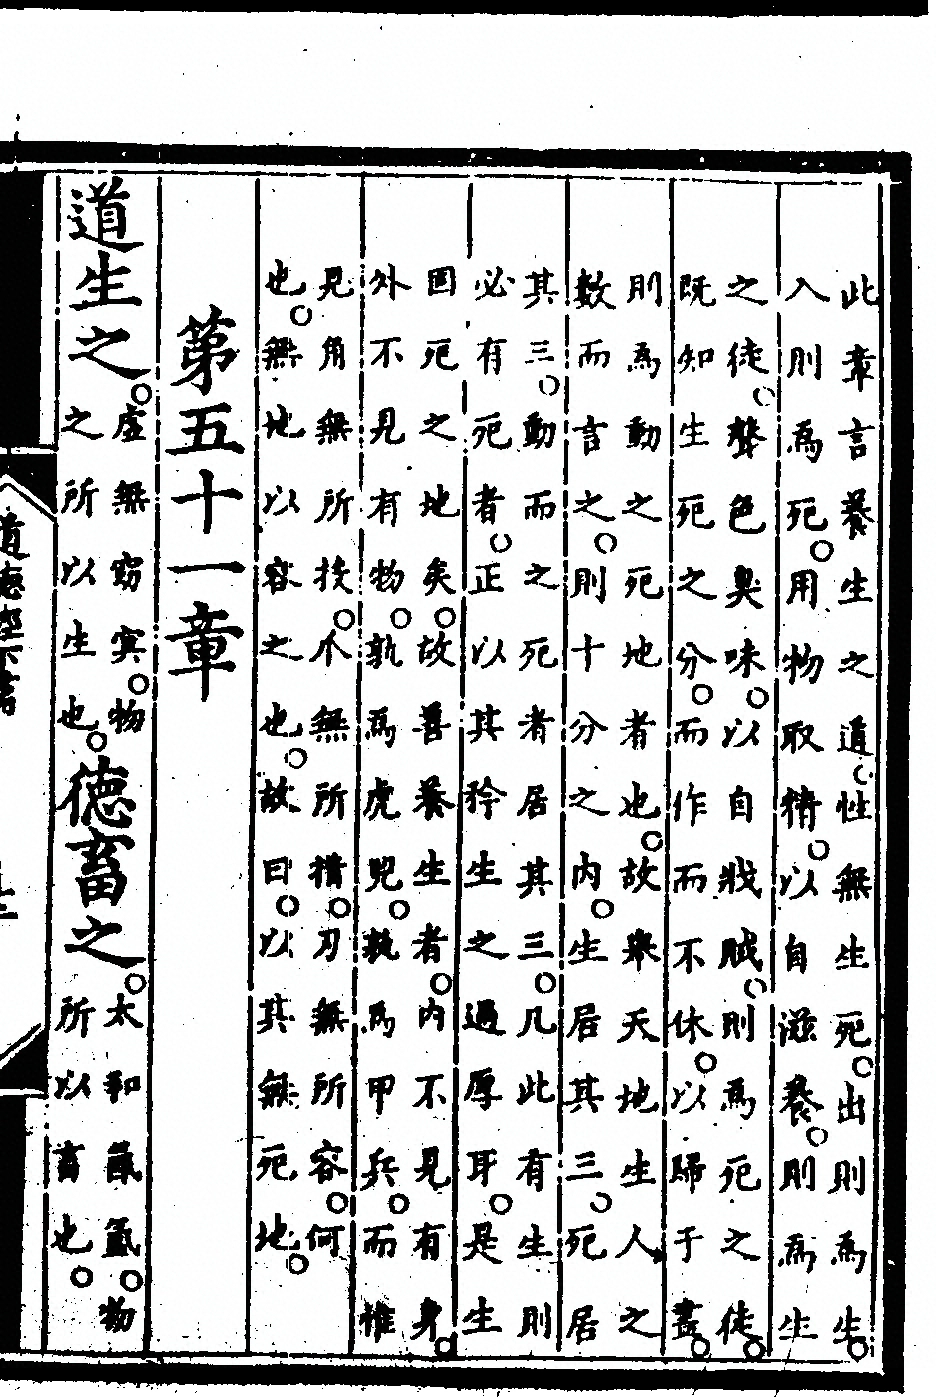 此章言養生之道性無生死出則為生
入則為死用物取精以自滋養則為生
之徒聲色臭味以自戕賊則為死之徒
既知生死之分而作而不休以歸于盡
則為動之死地者也故舉天地生人之
數而言之則十分之內生居其三死居
其三動而之死者居其三凡此有生則
必有死者正以其矜生之過厚耳是生
固死之地矣故善養生者內不見有身
外不見有物孰為虎兕孰為甲兵而惟
見角無所投爪無所措刃無所容何
也無地以容之也故曰以其無死地
第五十一章
道生之
虛無窈冥物
之所以生也
德畜之
太和氤氳物
所以畜也
道德經下篇